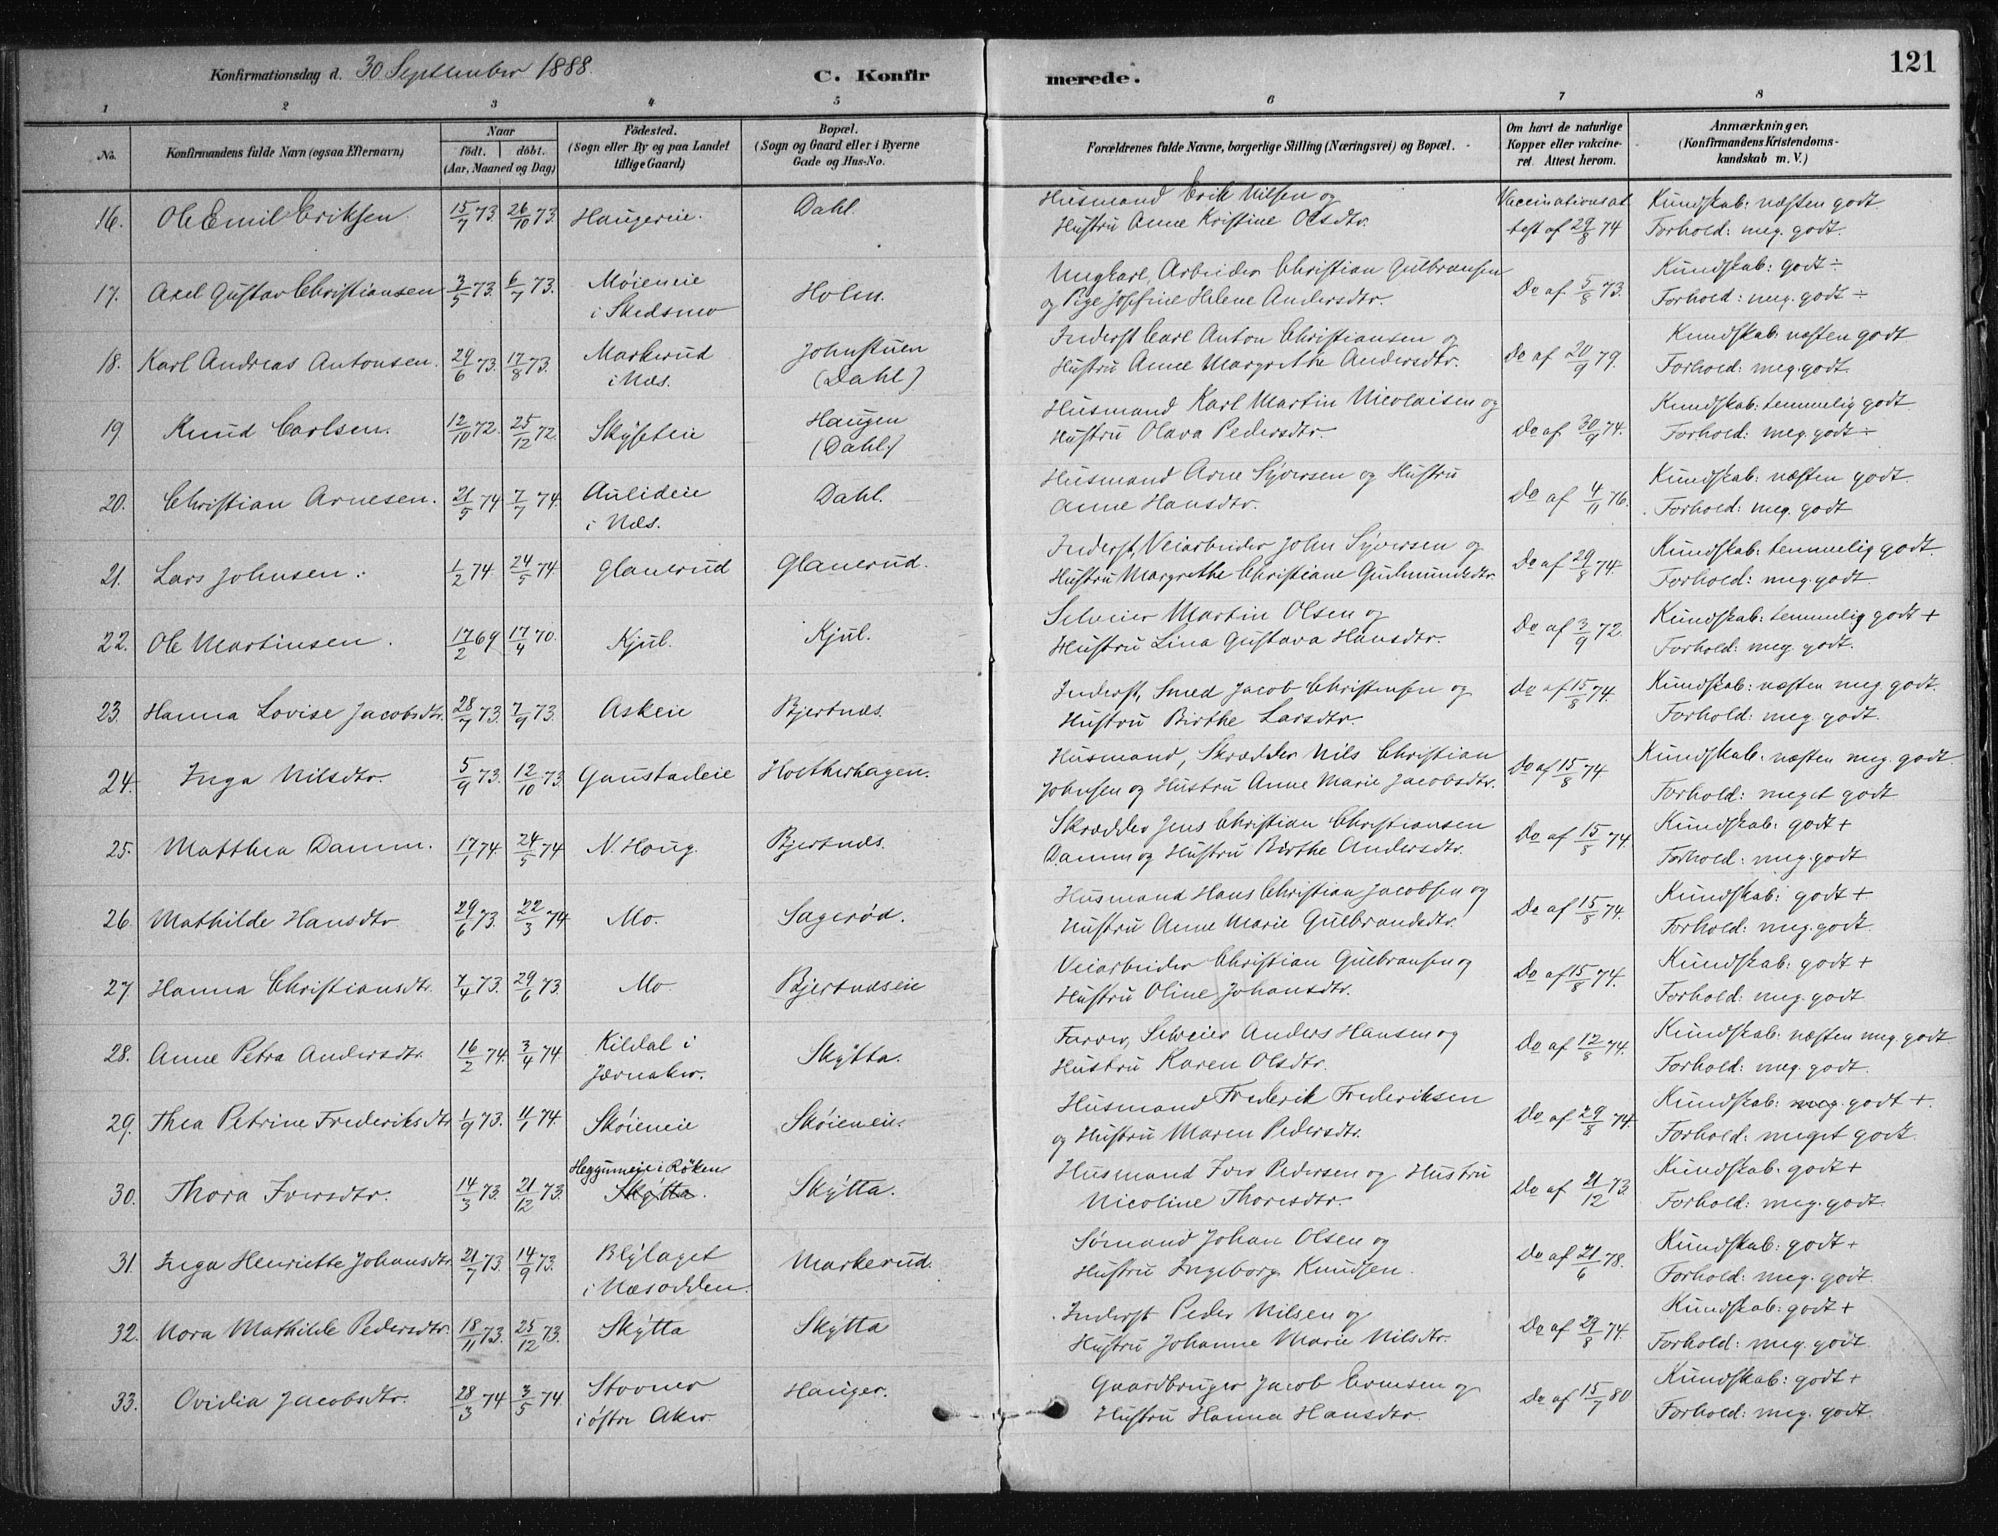 Konfirmationsdag d. 30 September 1888.
C. Konfir merede.
121
1 2 3 4 5 6 7 8
No.
Konfirmandens fulde Navn (ogsaa Efternavn)
Naar
födt. döbt.
(Aar, Maaned og Dag)
Födested.
(Sogn eller By og paa Landet
tillige Gaard)
Bopæl.
(Sogn og Gaard eller i Byerne
Gade og Hus-No.
Forældrenes fulde Navne, borgerlige Stilling (Næringsvei) og Bopæl.
Om havt de naturlige
Kopper eller vakcine-
ret. Attest herom.
Anmærkninger.
(Konfirmandens Kristendoms-
kundskab m. V.)
16. Ole Emil Eriksen. 15/7 73. 26/10 73. Haugereie. Dahl. Husmand Erik Nilsen og Vaccinationsat Kundskab: næsten godt
Hustru Anne Kristine Olsdtr. test af 29/8 74 Forhold: meg. godt.
17. Axel Gustav Christiansen 3/5 73. 6/7 73. Møieneie Holm. Ungkarl, Arbeider Christian Gulbransen Do af 5/8 73. Kundskab: godt ÷
i Skedsmo og Pige Josefine Helene Andersdtr. Forhold: meg. godt ÷
18. Karl Andreas Antonsen. 29/6 73. 17/8 73. Markerud Johnstuen Inderst Carl Anton Christiansen og Do af 20/9 79. Kundskab: næsten godt
i Næs. (Dahl) Hustru Anne Margrethe Andersdtr. Forhold: meg. godt
19. Knud Carlsen. 12/10 72. 25/12 72. Skÿseteie Haugen Husmand Karl Martin Nicolaisen og Do af 30/9 74. Kundskab: temmelig godt
(Dahl) Hustru Olava Pedersdtr. Forhold: meg. godt ÷
20. Christian Arnesen. 21/5 74 7/7 74. Aulideie Dahl. Husmand Arne Sÿversen og Hustru Do af 4/11 76. Kundskab: næsten godt.
i Næs. Anne Hansdtr. Forhold: meg. godt
21. Lars Johnsen. 1/2 74. 24/5 74. Glanerud Glanerud. Inderst, Veiarbeider John Sÿversen og Do af 29/8 74. Kundskab: temmelig godt
Hustru Margrethe Christiane Gudmundsdtr. Forhold: meg. godt
22. Ole Martinsen. 17/2 69 17/4 70. Kjul. Kjul. Selveier Martin Olsen og Do af 3/9 72. Kundskab: temmelig godt +
Hustru Lina Gustava Hansdtr. Forhold: meg. godt.
23. Hanna Lovise Jacobsdtr. 28/7 73. 7/9 73. Askeie Bjertnæs. Inderst, Smed Jacob Christensen og Do af 15/8 74. Kundskab: næsten meg godt.
Hustru Birthe Larsdtr. Forhold: meg. godt.
24. Inga Nilsdtr. 5/9 73. 12/10 73. Gaustadeie Holterhagen. Husmand, Skrædder Nils Christian Do af 15/8 74 Kundskab: næsten meg. godt.
Johnsen og Hustru Anne Marie Jacobsdtr. Forhold: meget godt
25. Matthea Damm. 17/1 74. 24/5 74 N. Houg. Bjertnæs. Skrædder Jens Christian Christiansen Do af 15/8 74. Kundskab: godt +
Damm og Hustru Birthe Andersdtr. Forhold: meg. godt
26. Mathilde Hansdtr. 29/6 73. 22/3 74 Mo. Sagerød. Husmand Hans Christian Jacobsen og Do af 15/8 74. Kundskab: godt +
Hustru Anne Marie Gulbrandsdtr. Forhold: meg. godt.
27. Hanna Christiansdtr. 7/4 73. 29/6 73. Mo. Bjertnæseie Veiarbeider Christian Gulbransen og Do af 15/8 74. Kundskab: godt +
Hustru Oline Johansdtr. Forhold: meg. godt
28. Anne Petra Andersdtr. 16/2 74. 3/4 74 Kildal i Skÿtta. Farver, Selveier Anders Hansen og Do af 12/8 74. Kundskab: næsten meg. godt.
Jævnaker. Hustru Karen Olsdtr. Forhold: meg. godt.
29. Thea Petrine Frederiksdtr 1/9 73. 11/1 74. Skøieneie Skøieneie. Husmand Frederik Frederiksen Do af 29/8 74. Kundskab: meg godt +.
og Hustru Maren Pedersdtr. Forhold: meget godt.
Heggumeie i Røken
30. Thora Iversdtr. 14/3 73. 21/12 73. Skÿtta. Skÿtta. Husmand Iver Pedersen og Hustru Do af 21/12 73. Kundskab: godt +
Nicoline Thoresdtr. Forhold: meg. godt.
31. Inga Henriette Johansdtr 21/7 73. 14/9 73. Blÿlaget Markerud. Sømand Johan Olsen og Do af 21/6 78. Kundskab: godt +
i Næsodden. Hustru Ingeborg Knudsen. Forhold: meg. godt.
32. Nora Mathilde Pedersdtr. 18/11 73. 25/12 73. Skÿtta Skÿtta Inderst Peder Nilsen og Do af 29/8 74. Kundskab: godt +
Hustru Johanne Marie Nilsdtr. Forhold: meg. godt
33. Ovidia Jacobsdtr. 28/3 74 3/5 74. Stovner Hauger. Gaardbruger Jacob Evensen og Do af 15/7 80 Kundskab: godt +
i østre Aker. Hustru Hanna Hansdtr. Forhold: meg. godt.